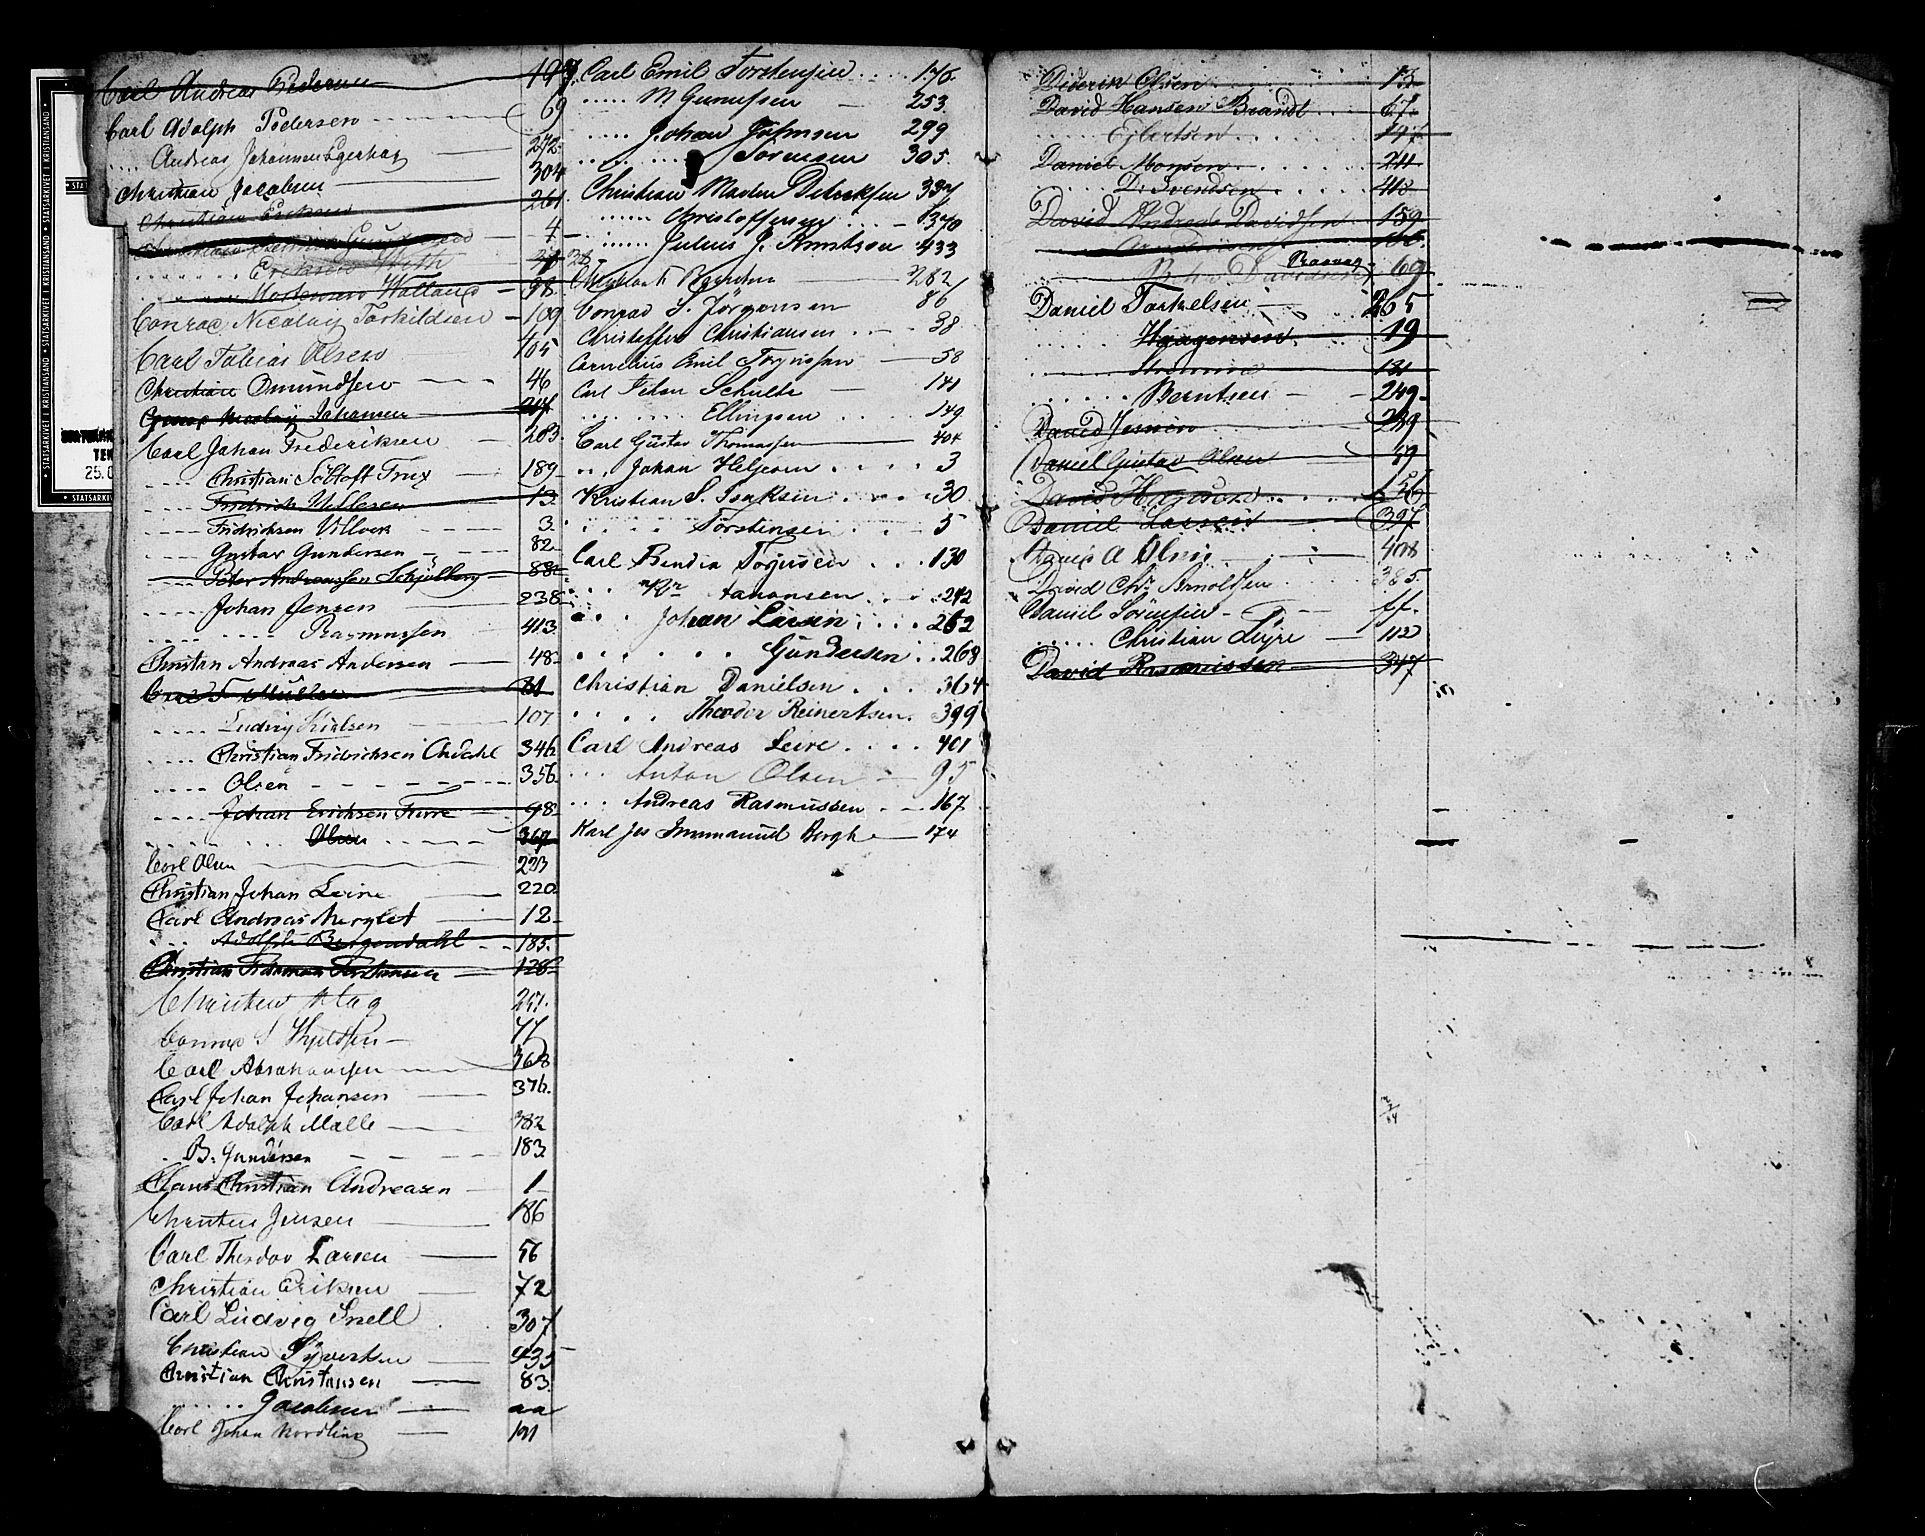 Carl Andreas Pedersen 197
Carl Adolph Pedersen 69
Andreas Johannesen Egerhag 272
Christian Jacobsen 304
Christian Eriksen 261
Christian 4
Eriksen With
Mortensen Walland 98
Conrad Nicolay Torkildsen 109
Carl Tobias Olsen 105
Christian Omundsen 46
Nicolay Johansen
Carl Johan Frederiksen 203
Christian Schloft Frux 189
Fredrick Villesen 13
Fridrichsen Ulloer 3
Gustav Gundersen 82
Peter Andreassen Schjulberg 88
Johan Jensen 238
Rasmussen 413
Christian Andreas Andersen 48
Carl F. Müller 81
Ludvig Kielsen 107
Christian Fridrichsen Omdahl 346
Olsen 356
Johan Erichsen Furre 98
Olsen 367
Carl Olsen 223
Christian Johan Leire 220
Carl Andreas 12
Adolph Bergendahl 185
Christian 128
Christen 251
Conrad S 77
Carl Abrahamsen 368
Carl Johan Johansen 376
Carl Adolph Malle 382
B. Gundersen 183
Claus Christian Andreasen 1
Christen Jensen 186
Carl Theodor Larsen 56
Christian Eriksen 72
Carl Ludvig Snell 307
Christian Syvertsen 435
Christian Christansen 83
Jacobsen aa
Carl Johan Nordling 191
Carl Emil Torstensen 170
M Gunufsen 253
Johan Johnsen 299
Sörensen 305
Christian Martin Didriksen 337
Christoffersen 370
Julius J. Knutson 433
282
Conrad S. Jörgensen 86
Christoffer Christiansen 38
Cornelius Emil Torgussen 58
Carl Johan Schulte 141
Ellingsen 149
Carl Gustav Thomassen 404
Johan Helgesen 3
Kristian S. Isaksen 30
Torstensen 5
Carl Bendix Torjusen 130
Johansen 242
Johan Larsen 262
Gundersen 268
Christian Danielsen 364
Theodor Reinertsen 399
Carl Andreas Leire 401
Anton Olsen 95
Andreas Rasmussen 167
Karl Jos Immanuel Bergh 174
Diderik Olsen 13
David Hansen Brandt 67
Eilertsen 147
Daniel Monsen 24
D. Svendsen 48
David Andreas Davidsen 159
Davidsen Raavag 69
Daniel Torkelsen 265
Haagensen 19
181
Berntsen 249
David Jensen 229
Daniel Gustav Olsen 49
David Hansen 156
Daniel Larsen 397
Daniel A Olsen 408
David Chr. Arnoldsen 385
Daniel Sörensen ff.
Christian Leyre 112
David Rasmussen 347
STATSARKIVET I KRISTIANSAND